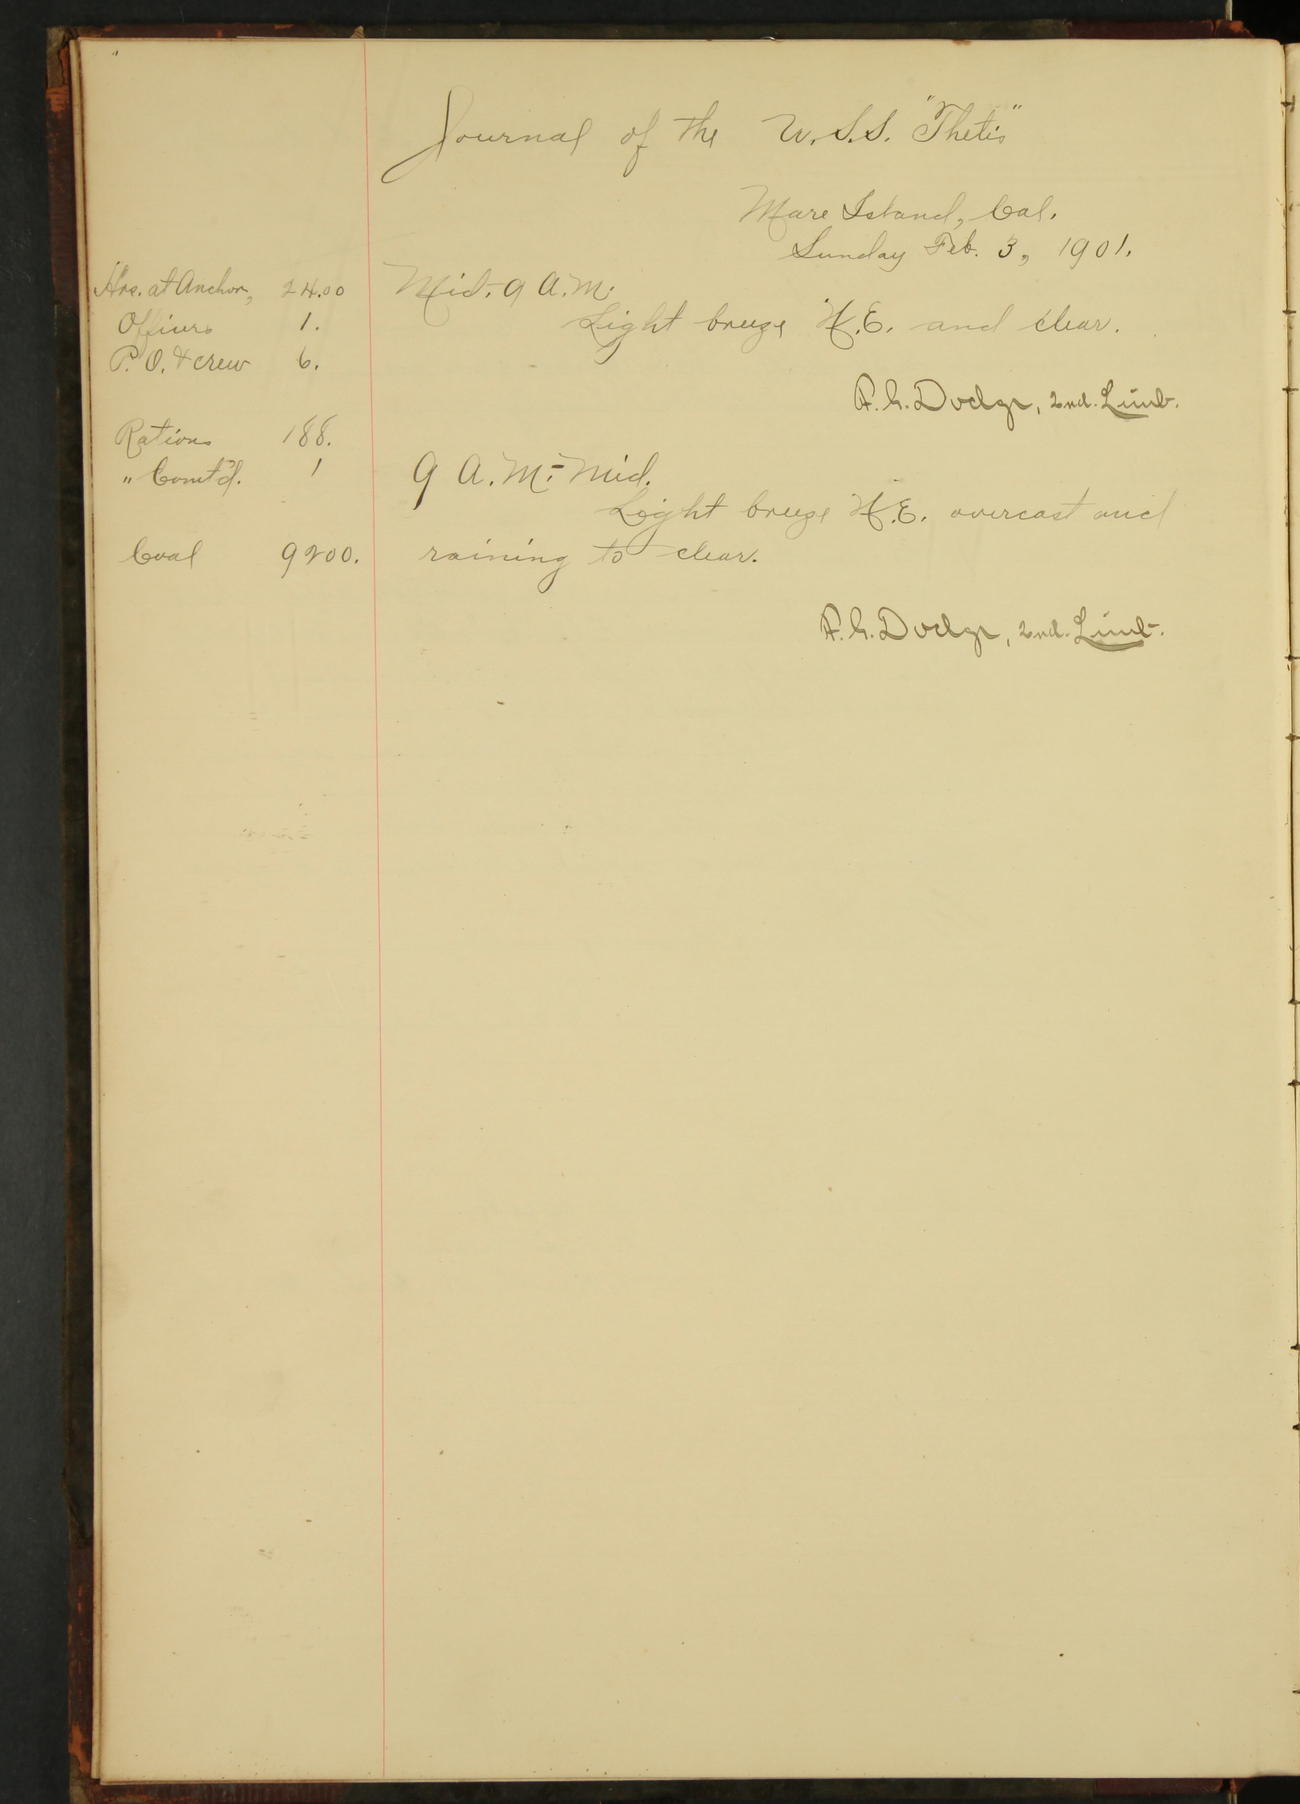 Journal of the U.S.S. "Thetis"
Mare Island, Cal.
Sunday Feb. 3, 1901.
Hrs. at Anchor, 24.00
Officers 1.
P. O. & crew 6.
Rations 188.
" Comt'd. 1
Coal 9200.
Mid. - 9 A.M.
Light breeze N.E. and clear.
F. G. Dodge, 2nd. Lieut.
9 A.M. - Mid.
Light breeze N.E. overcast and
raining to clear.
F. G. Dodge, 2nd. Lieut.